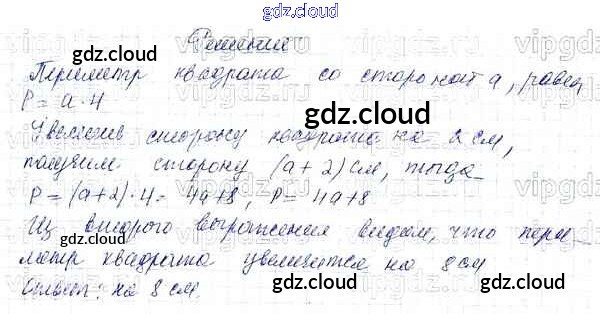 gdz.cloud
Решение
Периметр квадрата со стороной a, равен
P = a · 4
Увеличив сторону квадрата на 2 см,
получим сторону (a + 2) см, тогда
P = (a+2) · 4 = 4a+8, P = 4a+8
Из второго выражения видим, что пери-
метр квадрата увеличится на 8 см
Ответ: на 8 см.
gdz.cloud
gdz.cloud
gdz.cloud
gdz.cloud
gdz.cloud
gdz.cloud
gdz.cloud
gdz.cloud